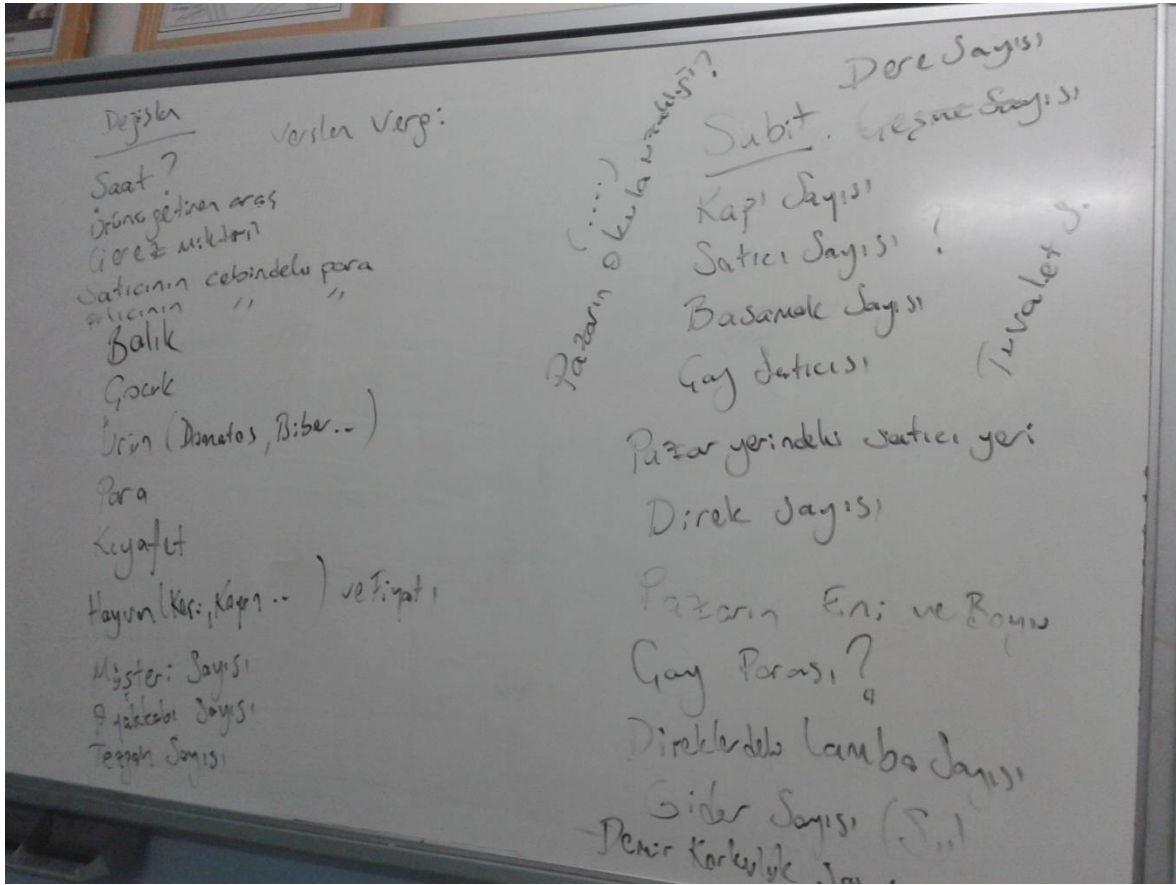 Değişken
Verilen Vergi
Saat?
Ürünü getiren araç
Çerez miktarı?
Satıcının cebindeki para
alıcının " "
Balık
Çocuk
Ürün (Domates, Biber..)
Para
Kıyafet
Hayvan (Keçi, Koyun ..) ve Fiyatı
Müşteri Sayısı
Ayakkabı Sayısı
Tezgah Sayısı
Pazarın okula uzaklığı?
(.....)
Dere Sayısı
Sabit. Çeşme Sayısı
Kapı Sayısı
Satıcı Sayısı ?
Basamak Sayısı
Çay Satıcısı
(Tuvalet S.
Pazar yerindeki satıcı yeri
Direk Sayısı
Pazarın Eni ve Boyu
Çay Parası?
Direklerdeki Lamba Sayısı
Gider Sayısı (Su)
Demir Korkuluk